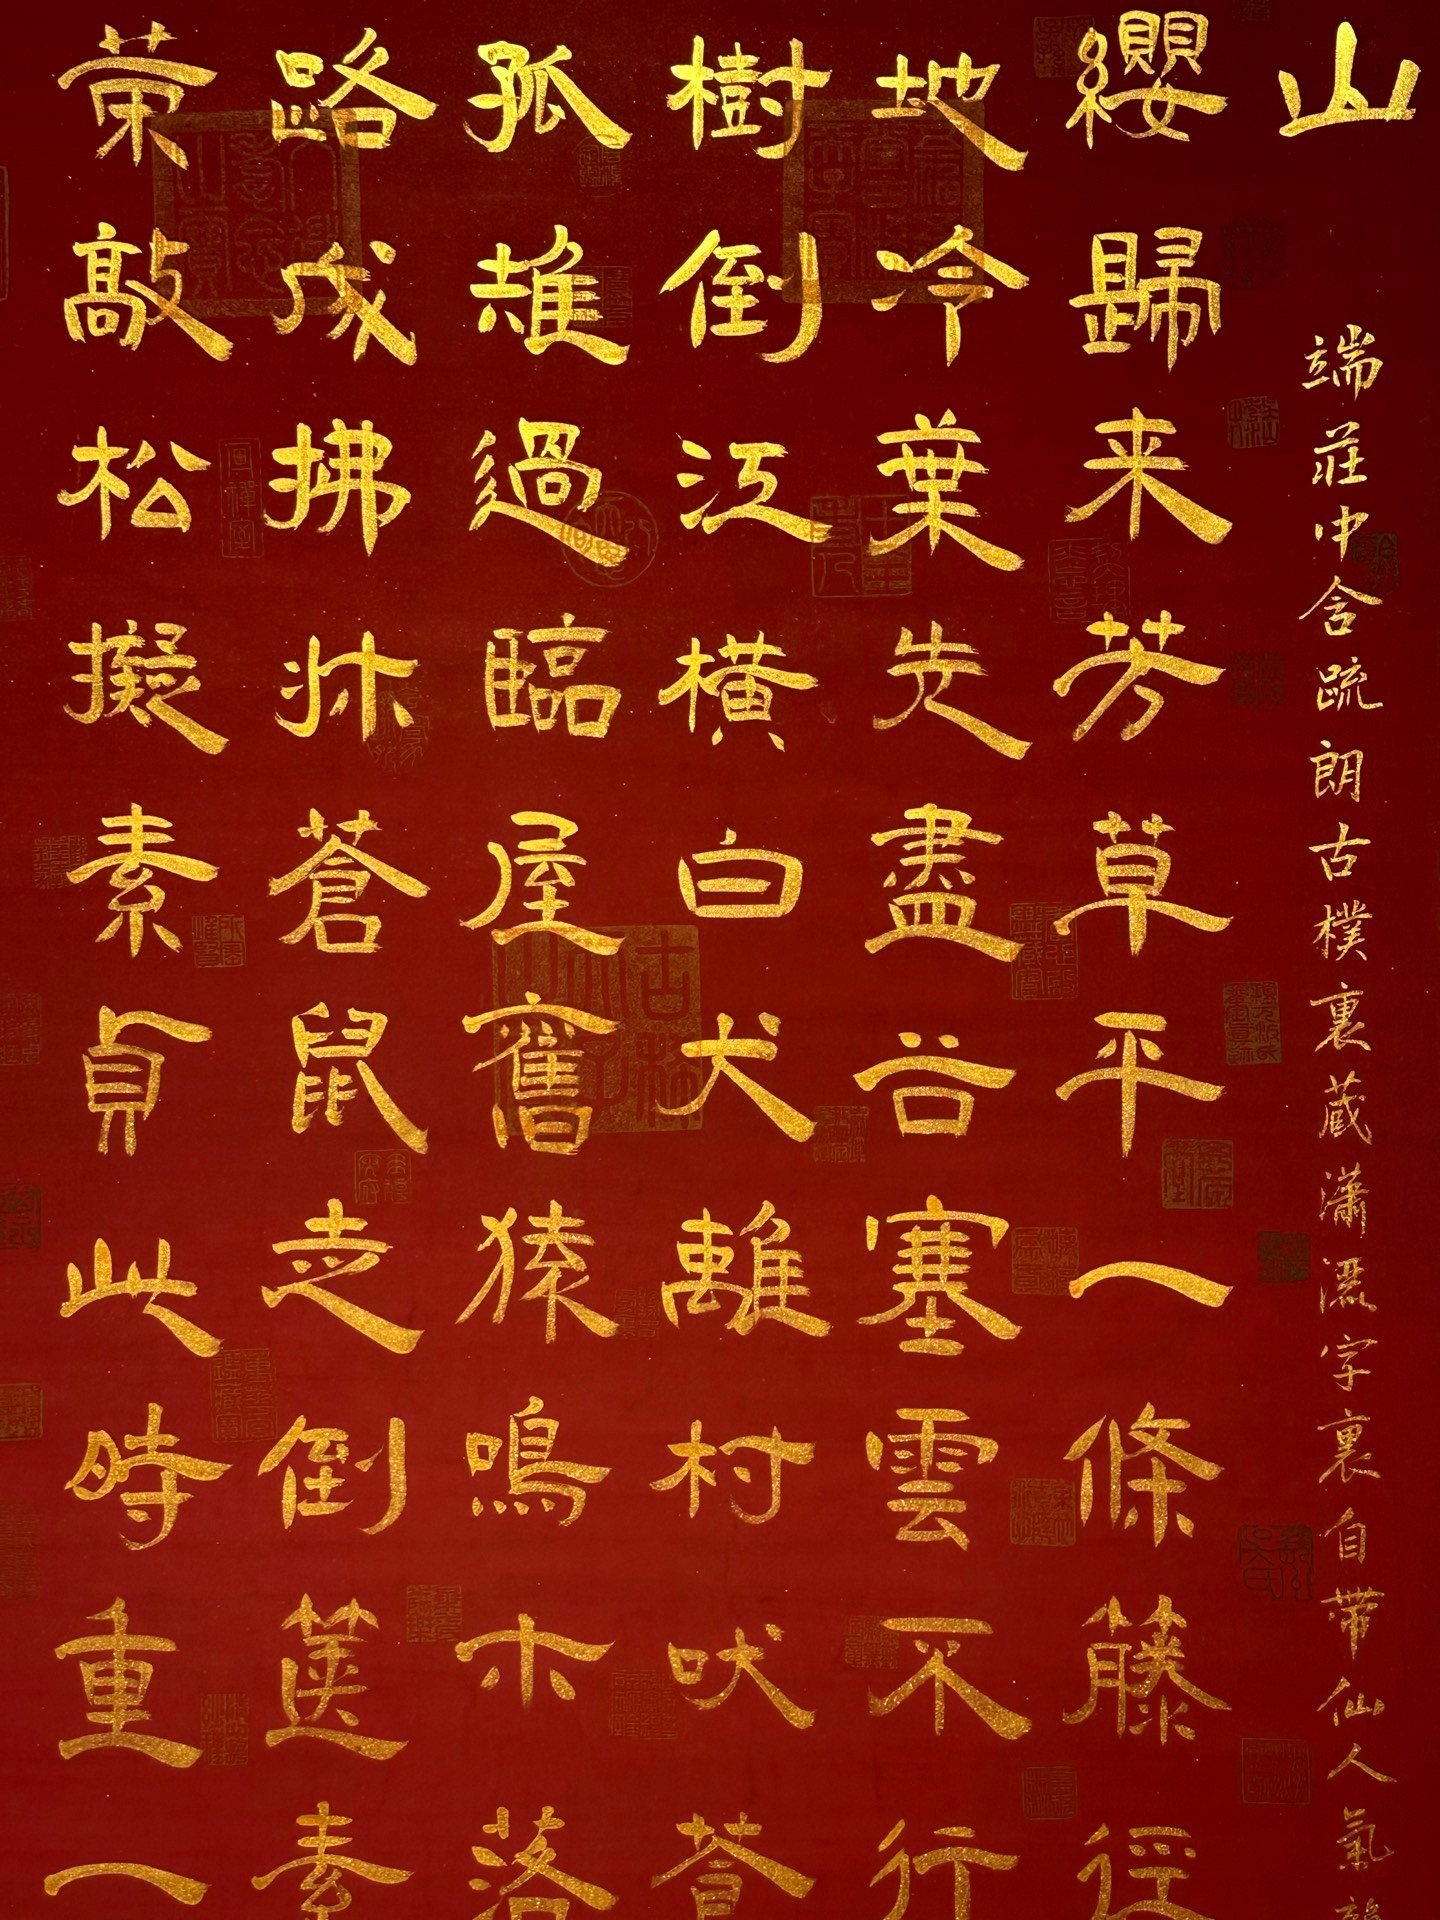 山
端莊中含疏朗古樸裏蔵瀟灑字裏自帶仙人氣韻
纓歸来芳草平一條藤徑
地冷葉先盡谷塞雲不行
樹倒江橫白犬離村吠蒼
孤雉過臨屋舊猿鳴木落
路成拂牀蒼鼠走倒篋素
策敲松擬素貞此時重一